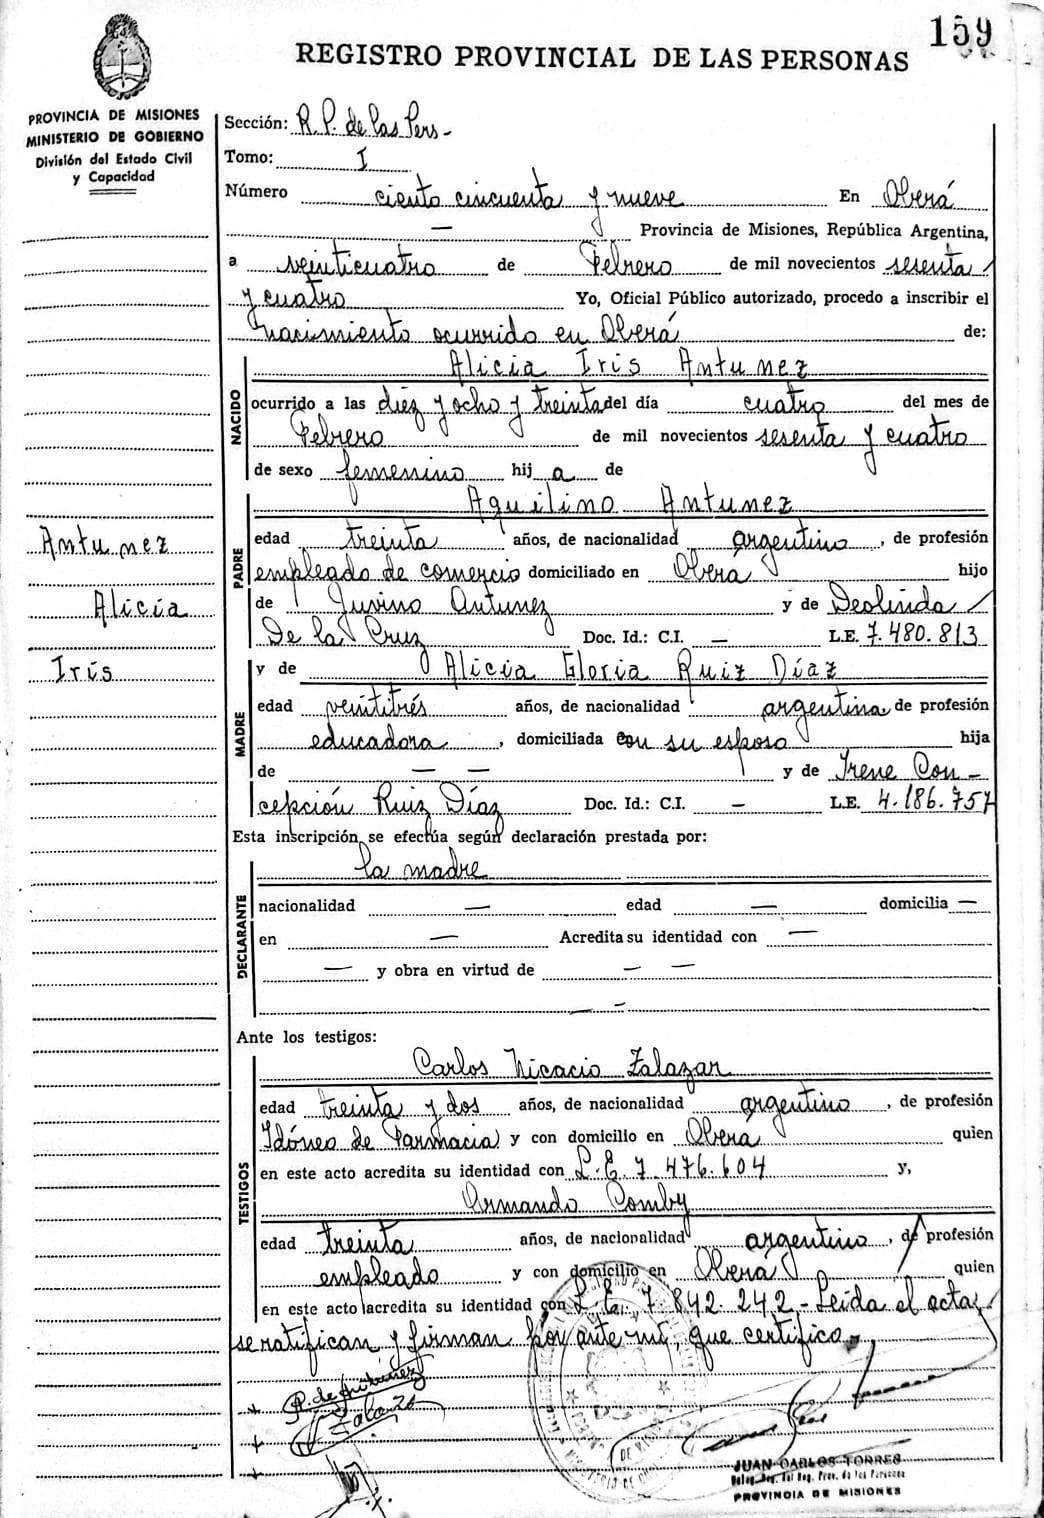 159
REGISTRO PROVINCIAL DE LAS PERSONAS
PROVINCIA DE MISIONES
MINISTERIO DE GOBIERNO
División del Estado Civil
y Capacidad
Sección: R. P. de las Pers-
Tomo: I
Número ciento cincuenta y nueve En Oberá
— Provincia de Misiones, República Argentina,
a veinticuatro de Febrero de mil novecientos sesenta /
y cuatro Yo, Oficial Público autorizado, procedo a inscribir el
nacimiento ocurrido en Oberá de:
NACIDO
Alicia Iris Antunez
ocurrido a las diez y ocho y treinta del día cuatro del mes de
Febrero de mil novecientos sesenta y cuatro
de sexo femenino hij a de
PADRE
Aquilino Antunez
Antunez
Alicia
Iris
edad treinta años, de nacionalidad argentino, de profesión
empleado de comercio domiciliado en Oberá hijo
de Juvino Antunez y de Deolinda /
De la Cruz Doc. Id.: C.I. — L.E. 7.480.813
MADRE
y de Alicia Gloria Ruiz Díaz
edad veintitrés años, de nacionalidad argentina de profesión
educadora, domiciliada con su esposo hija
de — — y de Irene Con-
cepción Ruiz Díaz Doc. Id.: C.I. — L.E. 4.186.757
Esta inscripción se efectúa según declaración prestada por:
DECLARANTE
la madre
nacionalidad — edad — domicilia —
en — Acredita su identidad con —
— y obra en virtud de — —
— –
Ante los testigos:
TESTIGOS
Carlos Nicacio Zalazar
edad treinta y dos años, de nacionalidad argentino, de profesión
Idóneo de Farmacia y con domicilio en Oberá quien
en este acto acredita su identidad con L.E. 7.476.604 y,
Armando Comby
edad treinta años, de nacionalidad argentino, de profesión
empleado y con domicilio en Oberá quien
en este acto acredita su identidad con L.E. 7.842.242.- Leída el acta,
se ratifican y firman por ante mí, que certifico.-
R. de Antúnez
JUAN CARLOS TORRES
PROVINCIA DE MISIONES